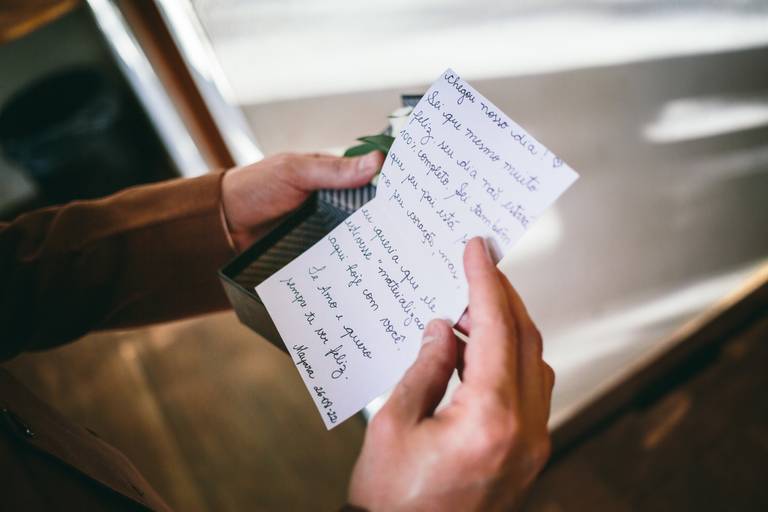 chegou nosso dia! ♡
Sei que mesmo muito
feliz, seu dia não estará
100% completo. Sei também
que seu pai está
no seu coração, mas
eu queria que ele
estivesse "materializado
aqui hoje com você.
Te Amo e quero
sempre te ver feliz.
Mayara 26-08-22